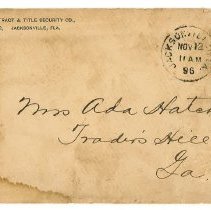 TRACT & TITLE SECURITY CO.,
JACKSONVILLE, FLA.
JACKSONVILLE
NOV 13
11 AM
96
Mrs Ada Hatch
Traders Hill
Ga.